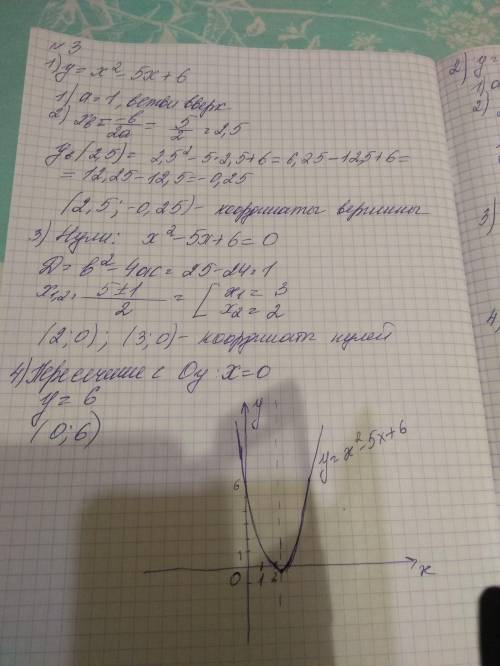 №3
1) y = x² - 5x + 6
1) a = 1, ветви вверх
2) xв = -b/2a = 5/2 = 2,5
yв(2,5) = 2,5² - 5·2,5 + 6 = 6,25 - 12,5 + 6 =
= 12,25 - 12,5 = -0,25
(2,5; -0,25) - координаты вершины
3) Нули: x² - 5x + 6 = 0
D = b² - 4ac = 25 - 24 = 1
x1,2 = 5±1/2 = [ x1 = 3
x2 = 2
(2; 0); (3; 0) - координаты нулей
4) Пересечение с Oy: x = 0
y = 6
(0; 6)
y
y = x² - 5x + 6
6
1
0 1 2
x
2) y =
1) a
2)
3)
4)